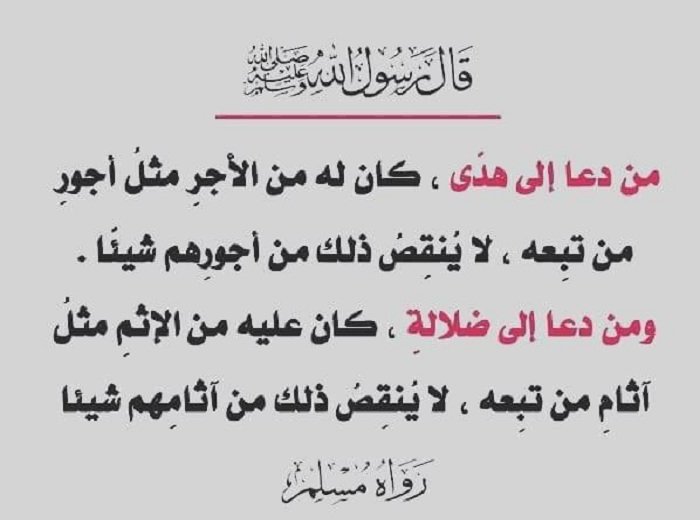 قَالَ رَسُولُ اللهِ صَلَّى اللهُ عَلَيْهِ وَسَلَّمَ
من دعا إلى هدًى ، كان له من الأجرِ مثلُ أجورِ
من تبِعه ، لا يُنقِصُ ذلك من أجورِهم شيئًا .
ومن دعا إلى ضلالةٍ ، كان عليه من الإثمِ مثلُ
آثامِ من تبِعه ، لا يُنقِصُ ذلك من آثامِهم شيئا
رَوَاهُ مُسْلِم